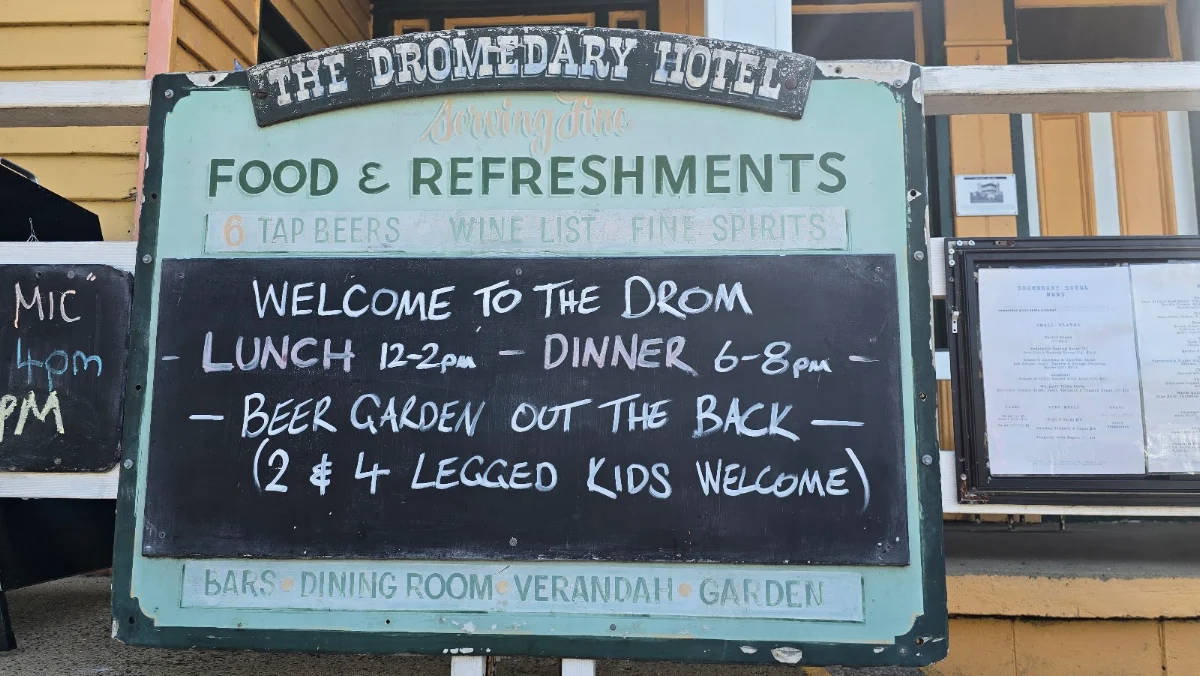 THE DROMEDARY HOTEL
Serving Fine
FOOD & REFRESHMENTS
6 TAP BEERS WINE LIST FINE SPIRITS
WELCOME TO THE DROM
- LUNCH 12-2pm - DINNER 6-8pm -
- BEER GARDEN OUT THE BACK -
(2 & 4 LEGGED KIDS WELCOME)
BARS • DINING ROOM • VERANDAH • GARDEN
MIC"
4pm
PM
DROMEDARY HOTEL
MENU
SMALL PLATES